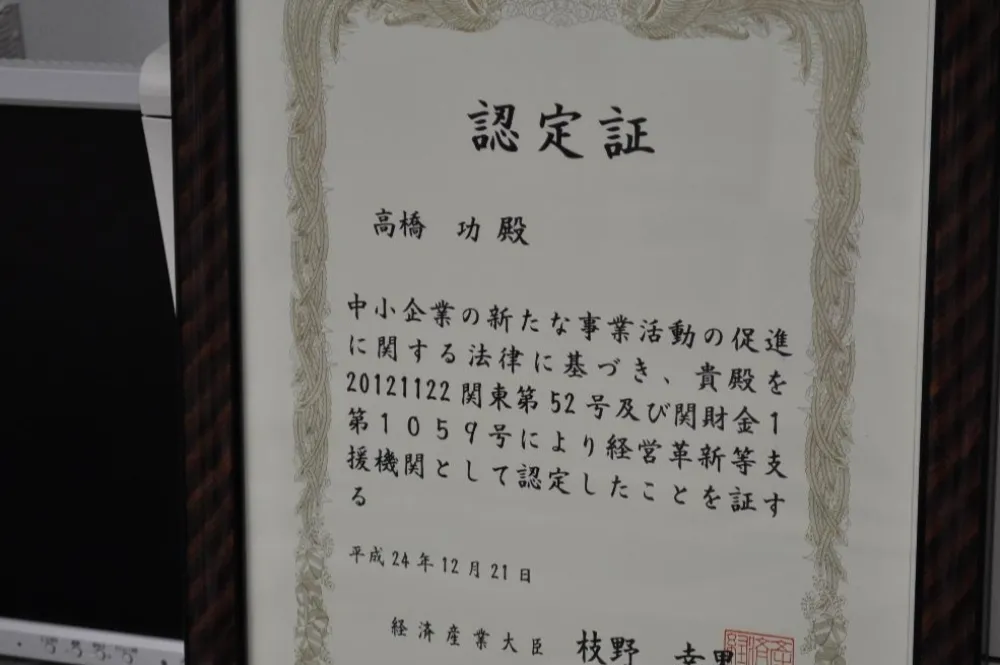 認定証
高橋 功 殿
中小企業の新たな事業活動の促進
に関する法律に基づき、貴殿を
20121122関東第52号及び関財金1
第1059号により経営革新等支
援機関として認定したことを証す
る
平成24年12月21日
経済産業大臣 枝野 幸男